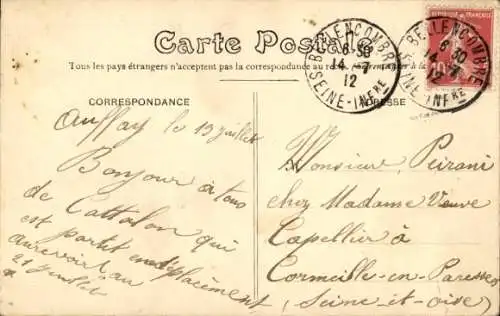 Carte Postale
Tous les pays étrangers n'acceptent pas la correspondance au
CORRESPONDANCE
ADRESSE
BELLENCOMBRE
6 30
14 - 7
12
SEINE-INFRE
BELLENCOMBRE
6 30
14 - 7
12
SEINE-INFRE
10
Auffay le 13 juillet
Bonjour à tous
de Cattalon qui
est partit en déplacement
aurevoir au
21 juillet
Monsieur Peirani
chez Madame Veuve
Capellier à
Cormeille-en-Paresis
(Seine-et-Oise)